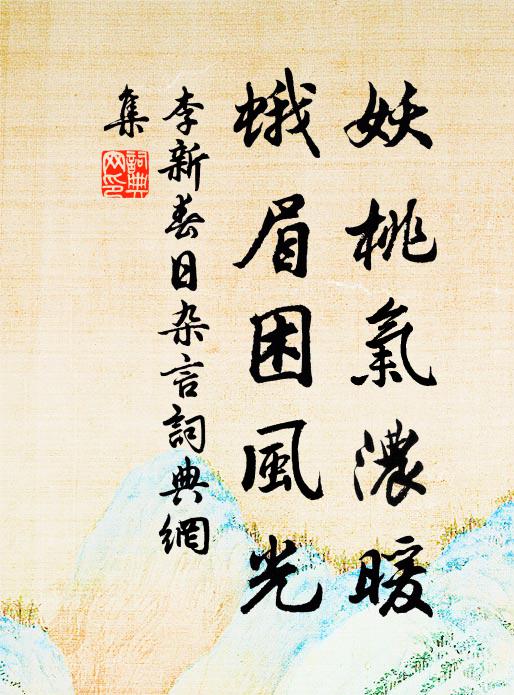 妖桃氣濃暖
蛾眉困風光
李新春日杂言詞典網
集
詞典网印